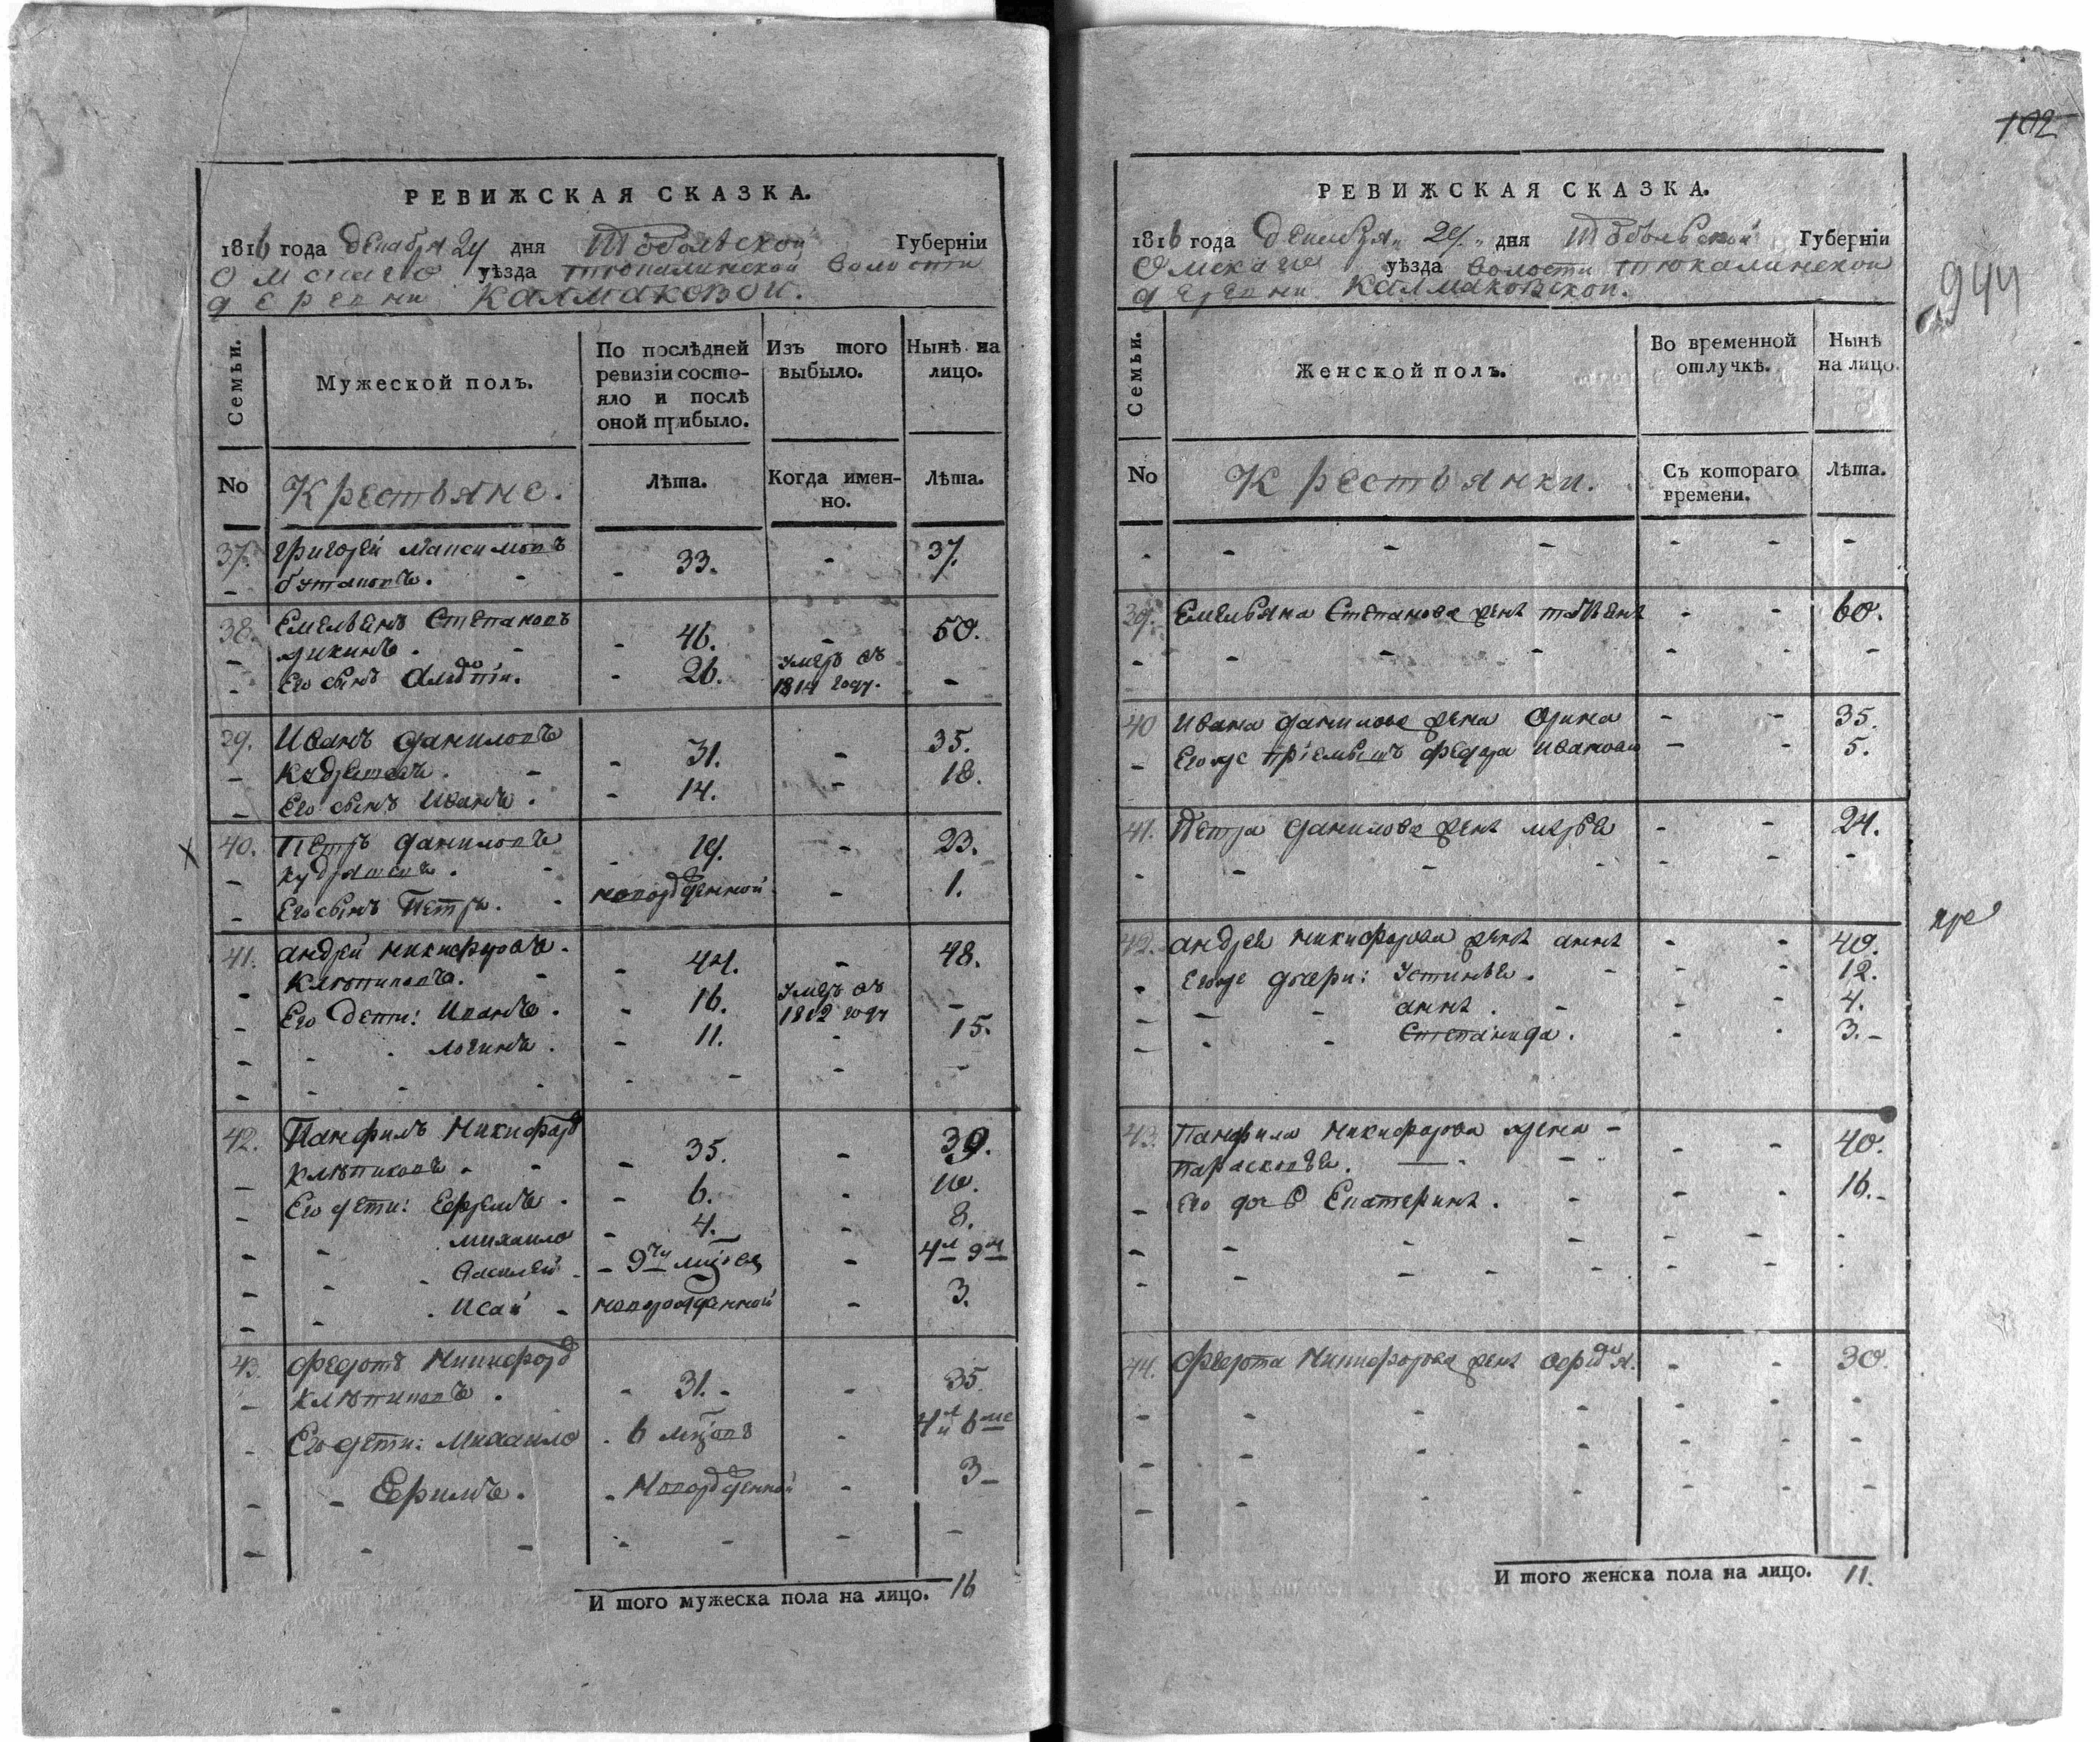 РЕВИЖСКАЯ СКАЗКА.
1816 года декабря 24 дня Тобольской Губерніи
Омскаго уѣзда тюкалинской волости
деревни Калмаковой.
Семьи.
Мужеской полъ.
По послѣдней ревизіи состо-
яло и послѣ
оной прибыло.
Изъ того
выбыло.
Нынѣ на
лицо.
No
Крестьяне.
Лѣта.
Когда имен-
но.
Лѣта.
37. григорей максимовъ - 33. - 37.
- бутаковъ. -
38. Емельянъ Степановъ - 46. - 50.
- дикинъ. -
- Его сынъ - 26. умеръ въ 1814 году. -
39. Иванъ даниловъ - 31. - 35.
- Кудрявовъ. -
- Его сынъ Иванъ. - 14. - 18.
40. Петръ даниловъ - 19. - 23.
- кудрявовъ. -
- Его сынъ Петръ. - новорожденной - 1.
41. андрей никифоровъ. - 44. - 48.
- Клюпиковъ. -
- Его дети: Иванъ. - 16. умеръ въ 1812 году -
- - . логинъ. - 11. - 15.
42. Панфилъ Никифоровъ - 35. - 39.
- клюпиковъ. -
- Его дети: Ефремъ. - 6. - 10.
- - . михаило - 4. - 8.
- - . Василей - 9ти мцовъ - 4л 9м
- - . Исай - новорожденной - 3.
43. федотъ Никифоровъ - 31. - - 35.
- клюпиковъ.
- Его дети: Михаило - 6 мцовъ - 4л и 6ме
- - Ефимъ. - Новорожденной - 3 -
И того мужеска пола на лицо. 16
102
РЕВИЖСКАЯ СКАЗКА.
1816 года декабря 24. дня Тобольской Губерніи
Омскаго уѣзда волости тюкалинской
деревни Калмаковской.
944
Семьи.
Женской полъ.
Во временной
отлучкѣ.
Нынѣ
на лицо.
No
Крестьянки.
Съ котораго
времени.
Лѣта.
39. Емельяна Степанова жена татьяна - - 60.
40 Ивана данилова жена Орина - - 35.
- Его же пріемышъ федора Иванова - - 5.
41. Петра данилова жена марья - - 24.
42. андрея никифорова жена анна - - 49.
- Его же дочери: Устинья. - - 12.
- - - анна. - - 4.
- - - Степанида. - 3. -
43. Панфила никифорова жена -
Парасковья. - - 40.
- Его дочь Екатерина. - - 16. -
44. федота Никифорова жена - - 30.
И того женска пола на лицо. 11.